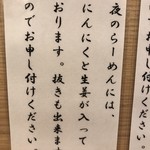 夜のらーめんには、
にんにくと生姜が入って
おります。抜きも出来ま
のでお申し付けください